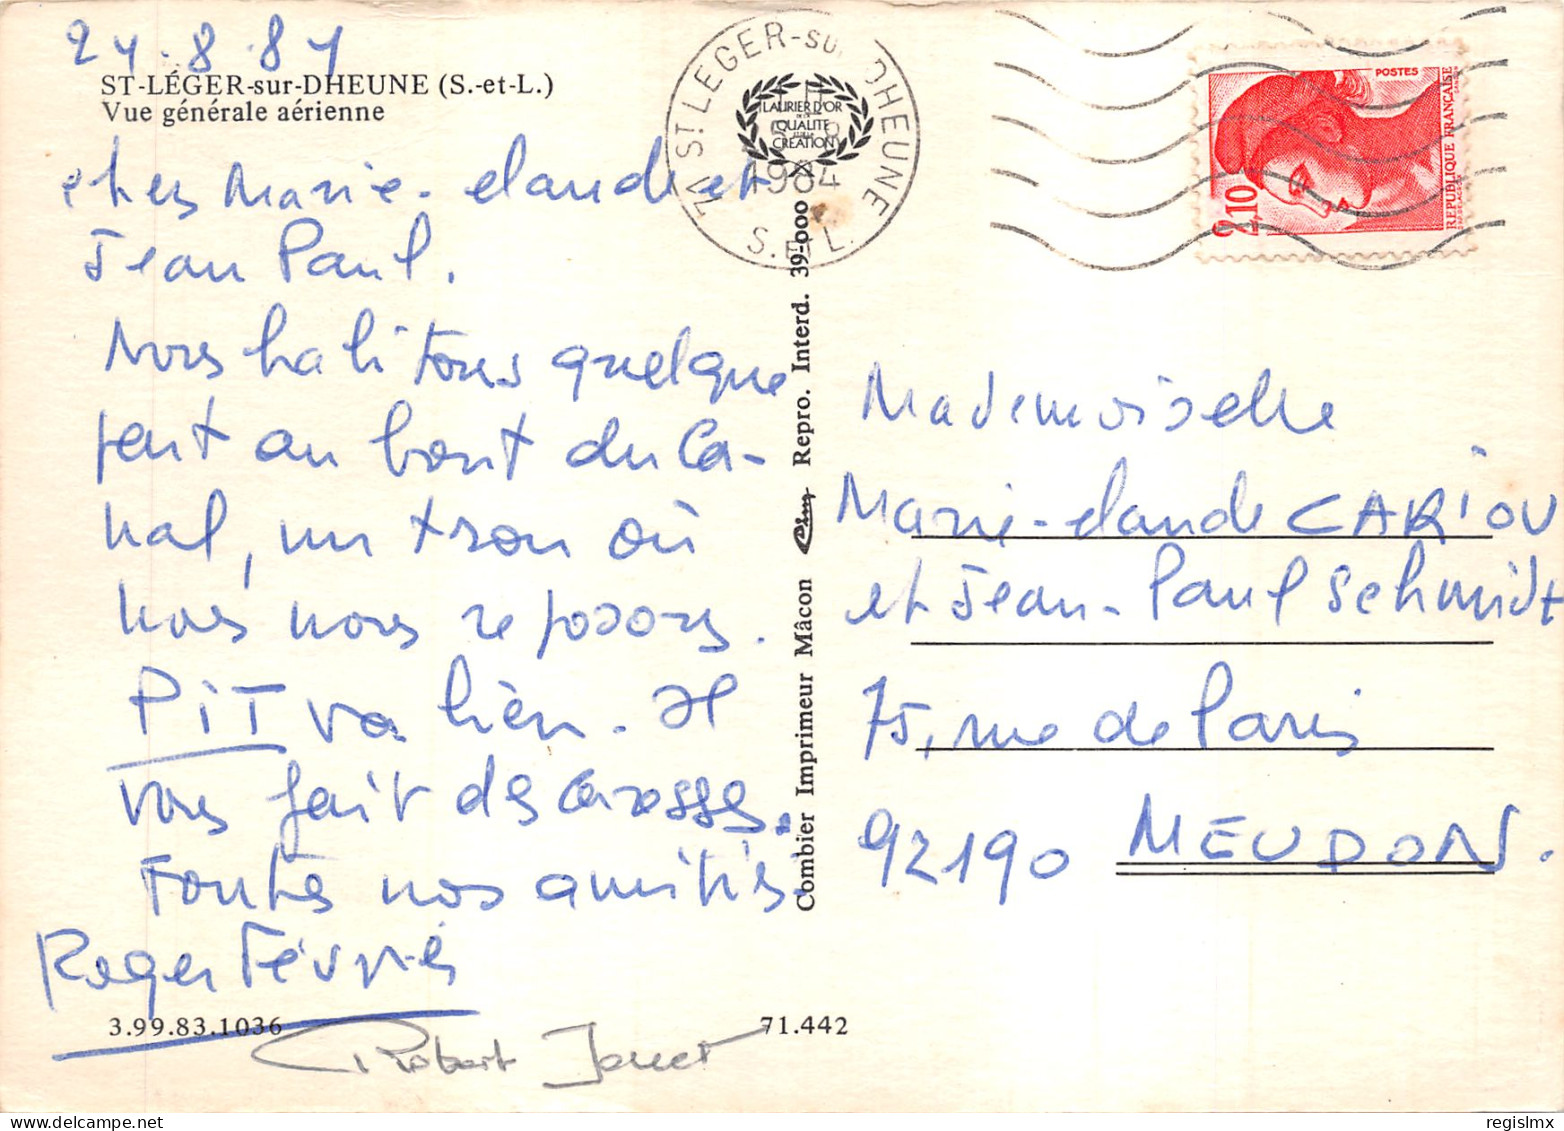 24.8.84
ST-LÉGER-sur-DHEUNE (S.-et-L.)
Vue générale aérienne
chers Marie-claude et
Jean Paul.
Nous habitons quelque
part au bout du Ca-
nal, un trou où
nous nous reposons.
PiT va bien. Il
vous fait des caresses.
Toutes nos amitiés.
Roger Févry
3.99.83.1036
Robert
71.442
Combier Imprimeur Mâcon Repro. Interd. 39-000
71 ST LEGER-sur-DHEUNE
1984
S.-et-L.
LAURIER D'OR
DE LA
QUALITE
CREATION
POSTES
REPUBLIQUE FRANÇAISE
2,10
Mademoiselle
Marie-claude CARiOU
et Jean-Paul Schmidt
75, rue de Paris
92190 MEUDON.
regislmx